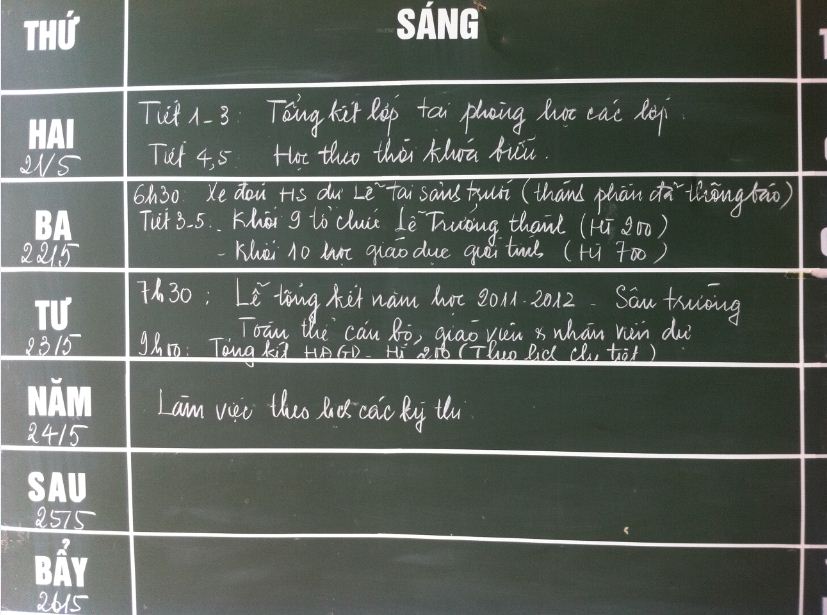 THỨ
SÁNG
HAI
21/5
Tiết 1-3: Tổng kết lớp tại phòng học các lớp.
Tiết 4,5: Học theo thời khoá biểu.
BA
22/5
6h30: Xe đón HS dự Lễ tại sảnh trước (thành phần đã thông báo)
Tiết 3-5: - Khối 9 tổ chức Lễ Trưởng thành (HT 200)
- Khối 10 học giáo dục giới tính (HT 700)
TƯ
23/5
7h30: Lễ tổng kết năm học 2011-2012 - Sân trường
Toàn thể cán bộ, giáo viên & nhân viên dự
9h00: Tổng kết HĐGD - HT 200 (Theo lịch chi tiết)
NĂM
24/5
Làm việc theo lịch các kỳ thi
SAU
25/5
BẨY
26/5